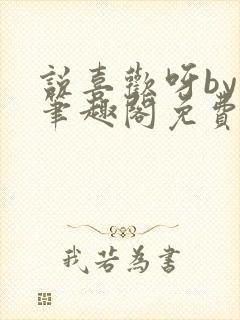 說喜歡呀by
筆趣閣免費
我若為書